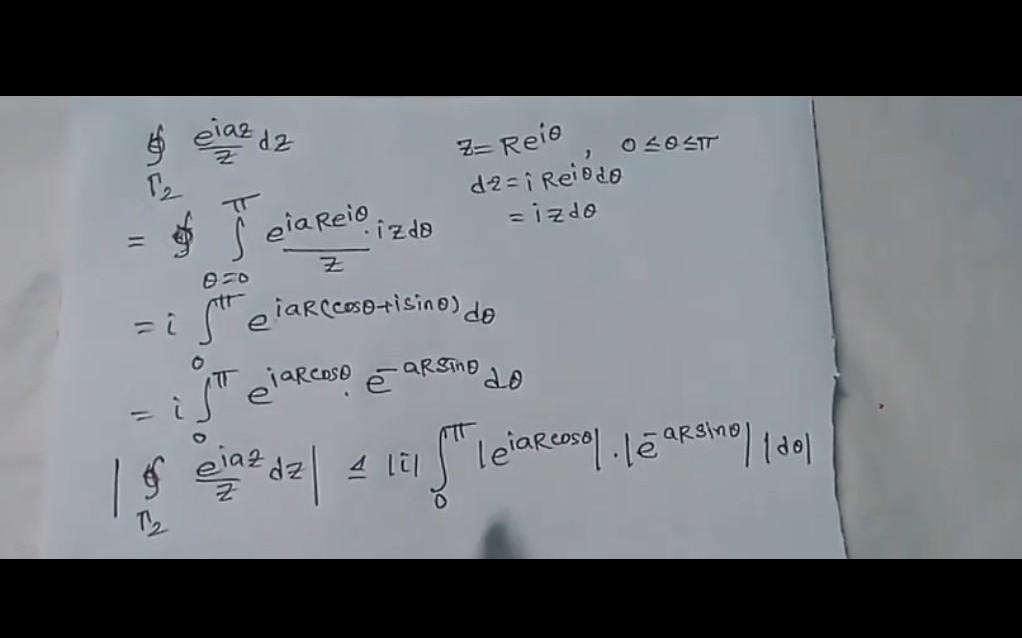 ∮_Γ₂ e^{iaz}/z dz    z = Re^{iθ} , 0 ≤ θ ≤ π
dz = i Re^{iθ} dθ
= ∫_{θ=0}^{π} e^{iaRe^{iθ}} . iz dθ / z    = iz dθ
= i ∫_0^π e^{iaR(cosθ+isinθ)} dθ
= i ∫_0^π e^{iaRcosθ} . e^{-aRsinθ} dθ
|∮_Γ₂ e^{iaz}/z dz| ≤ |i| ∫_0^π |e^{iaRcosθ}| . |e^{-aRsinθ}| |dθ|